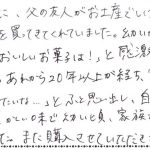 に、父の友人がお土産とい
を買ってきてくれていました。幼い
おいしいお菓子は！」と感激
あれから20年以上が経ち、
たいな…」とふと思い出し、自
かしい味でうれしいと、家族
また購入させていただき